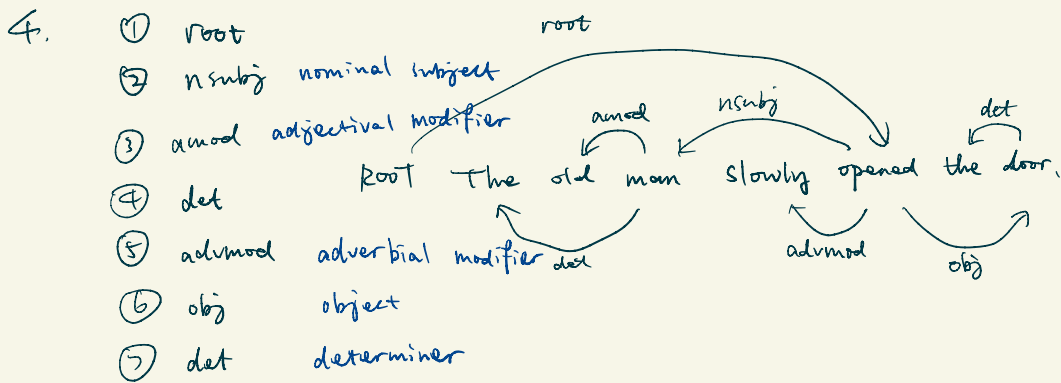 4. ① root
② nsubj nominal subject
③ amod adjectival modifier
④ det
⑤ advmod adverbial modifier
⑥ obj object
⑦ det determiner
root
amod nsubj det
ROOT The old man slowly opened the door.
det advmod obj